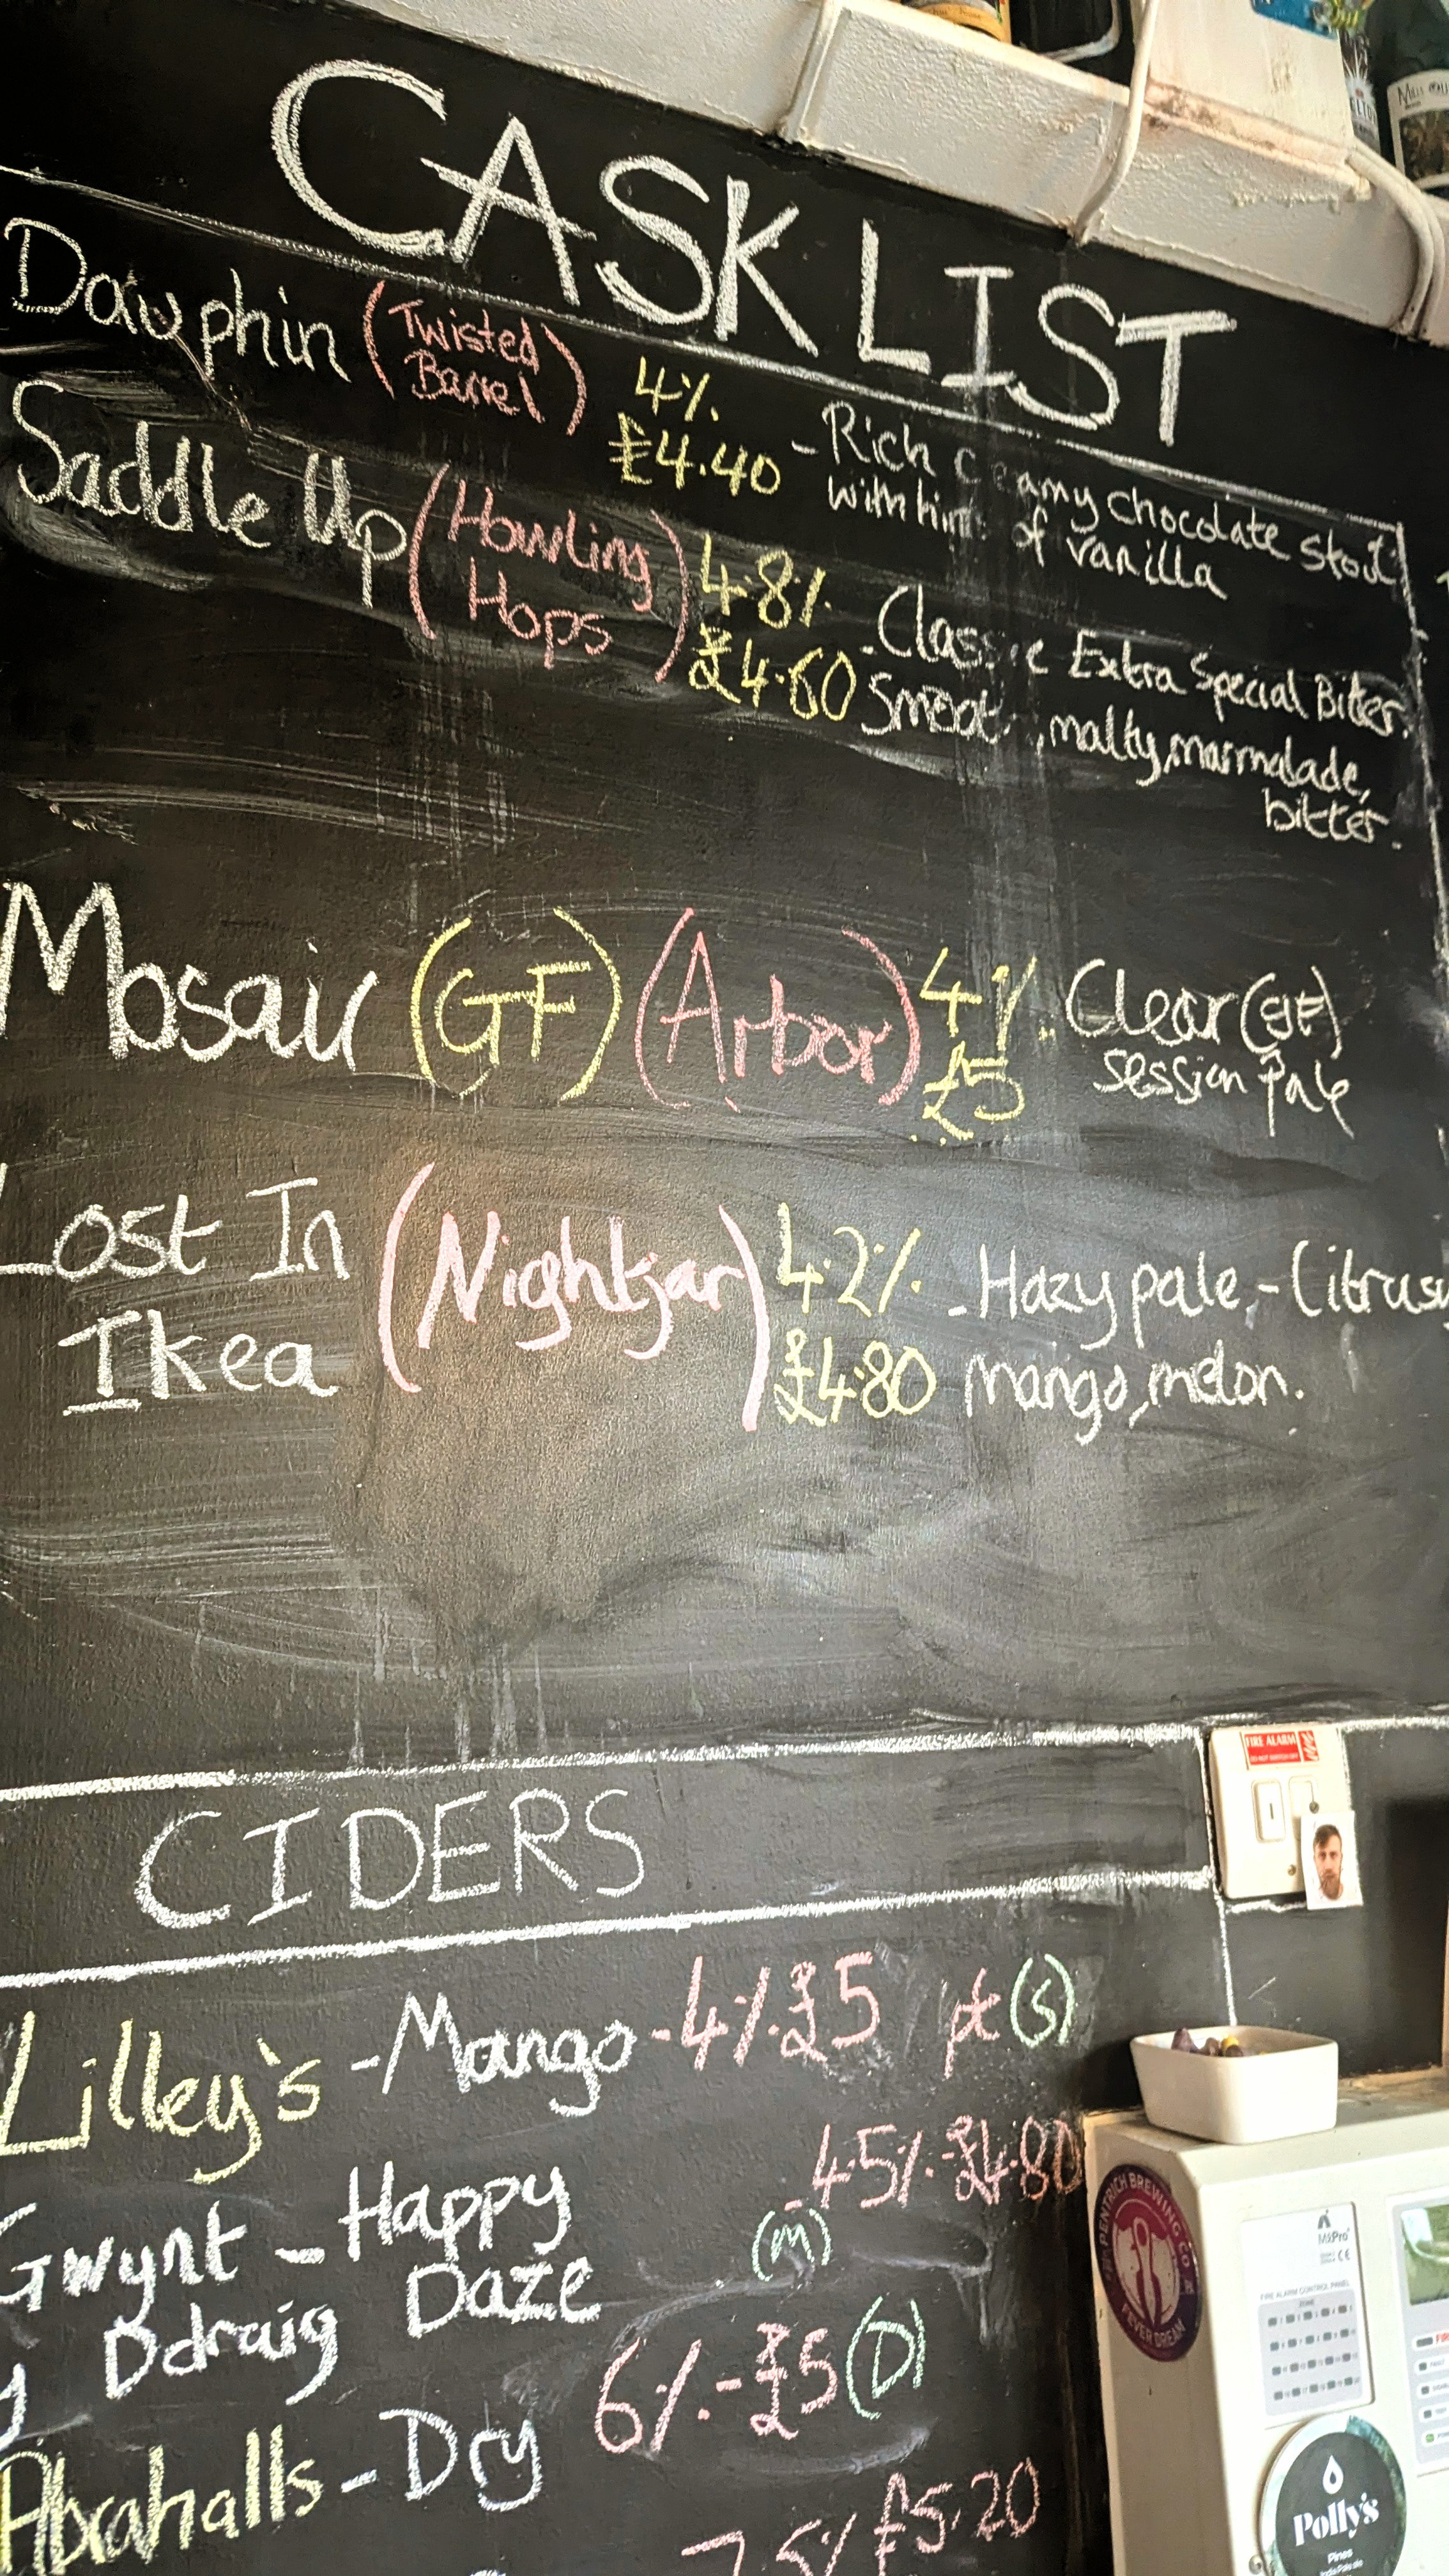 CASK LIST
Dauphin (Twisted Barrel) 4% £4.40 - Rich creamy chocolate stout
with hint of vanilla
Saddle Up (Howling Hops) 4.8% £4.60 - Classic Extra Special Bitter.
Smooth, malty, marmalade,
bitter.
Mosaic (GF) (Arbor) 4% £5 - Clear (GF)
session Pale
Lost In (Nightjar) 4.2% - Hazy pale, - Citrusy
Ikea £4.80 mango, melon.
CIDERS
Lilley's - Mango - 4% £5 pt (S)
Gwynt - Happy - 4.5% - £4.80
y Ddraig Daze (M)
Abrahalls - Dry 6% - £5 (D)
7.5% £5.20
FIRE ALARM
PENTRICH BREWING Co
FEVER DREAM
MxPro
FIRE ALARM CONTROL PANEL
ZONE
Polly's
Pines
India Pale ale